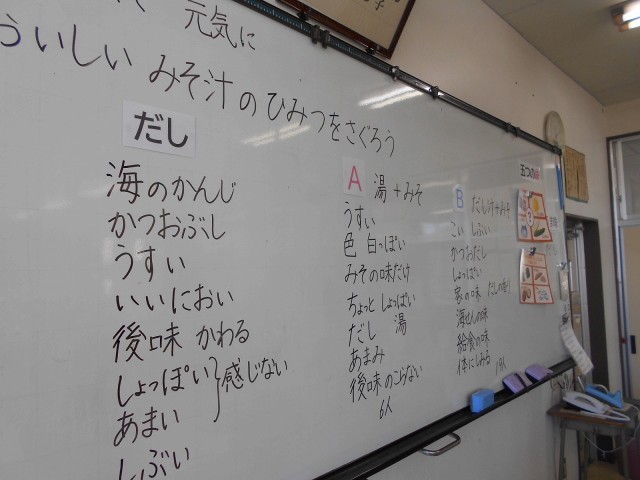 元気に
おいしい みそ汁のひみつをさぐろう
だし
海のかんじ
かつおぶし
うすい
いいにおい
後味 かわる
しょっぱい
あまい
しぶい
感じない
A 湯+みそ
うすい
色 白っぽい
みその味だけ
ちょっと しょっぱい
だし 湯
あまみ
後味のこらない
6人
B だし汁+みそ
こい しぶい
かつおだし
しょっぱい
家の味
海せんの味
給食の味
体にしみる
五つの